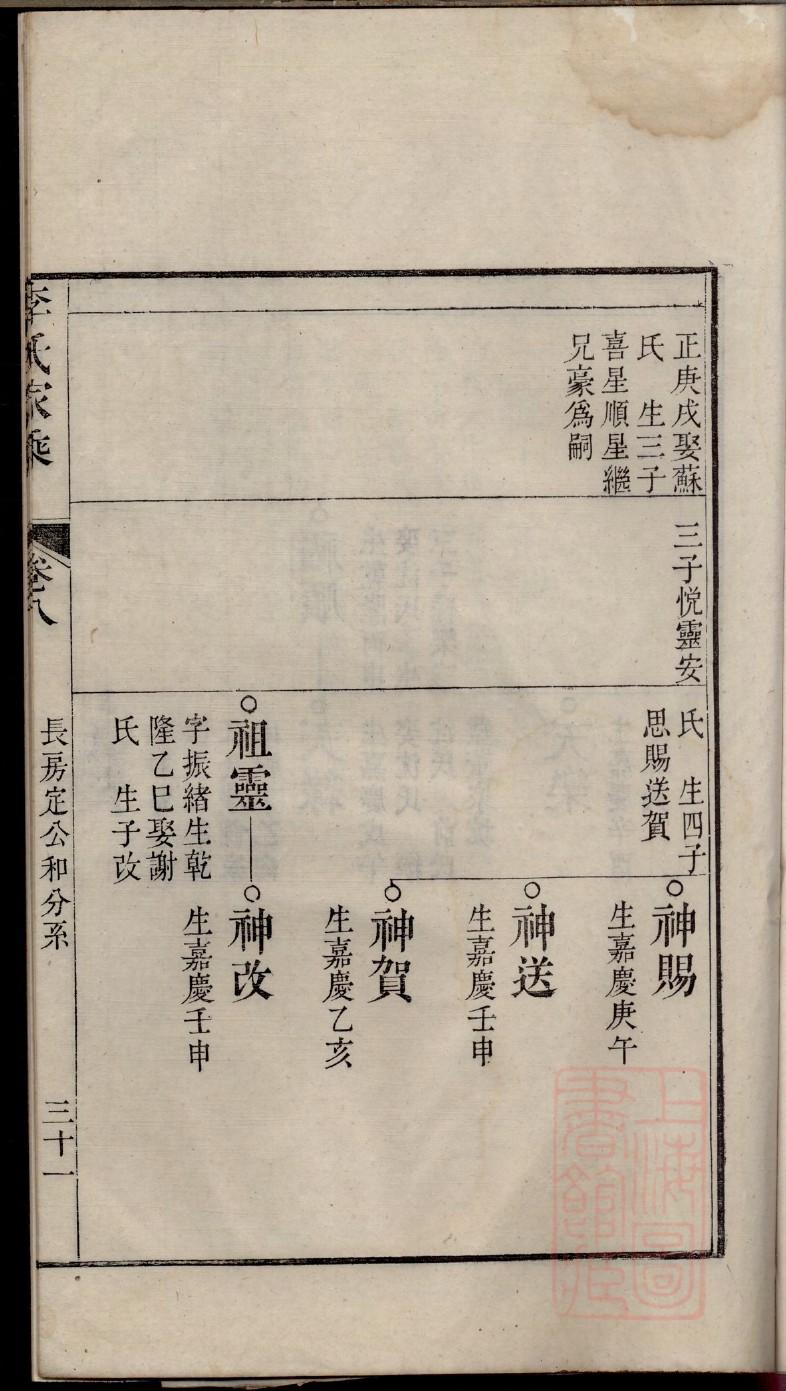 正庚戌娶蘇
氏　生三子
喜星順星繼
兄豪爲嗣
三子悅靈安
氏　生四子
思賜送賀
神賜
生嘉慶庚午
神送
生嘉慶壬申
神賀
生嘉慶乙亥
祖靈
字振緒生乾
隆乙巳娶謝
氏　生子改
神改
生嘉慶壬申
李氏家乘
卷八
長房定公和分系
三十一
上海圖
書館藏